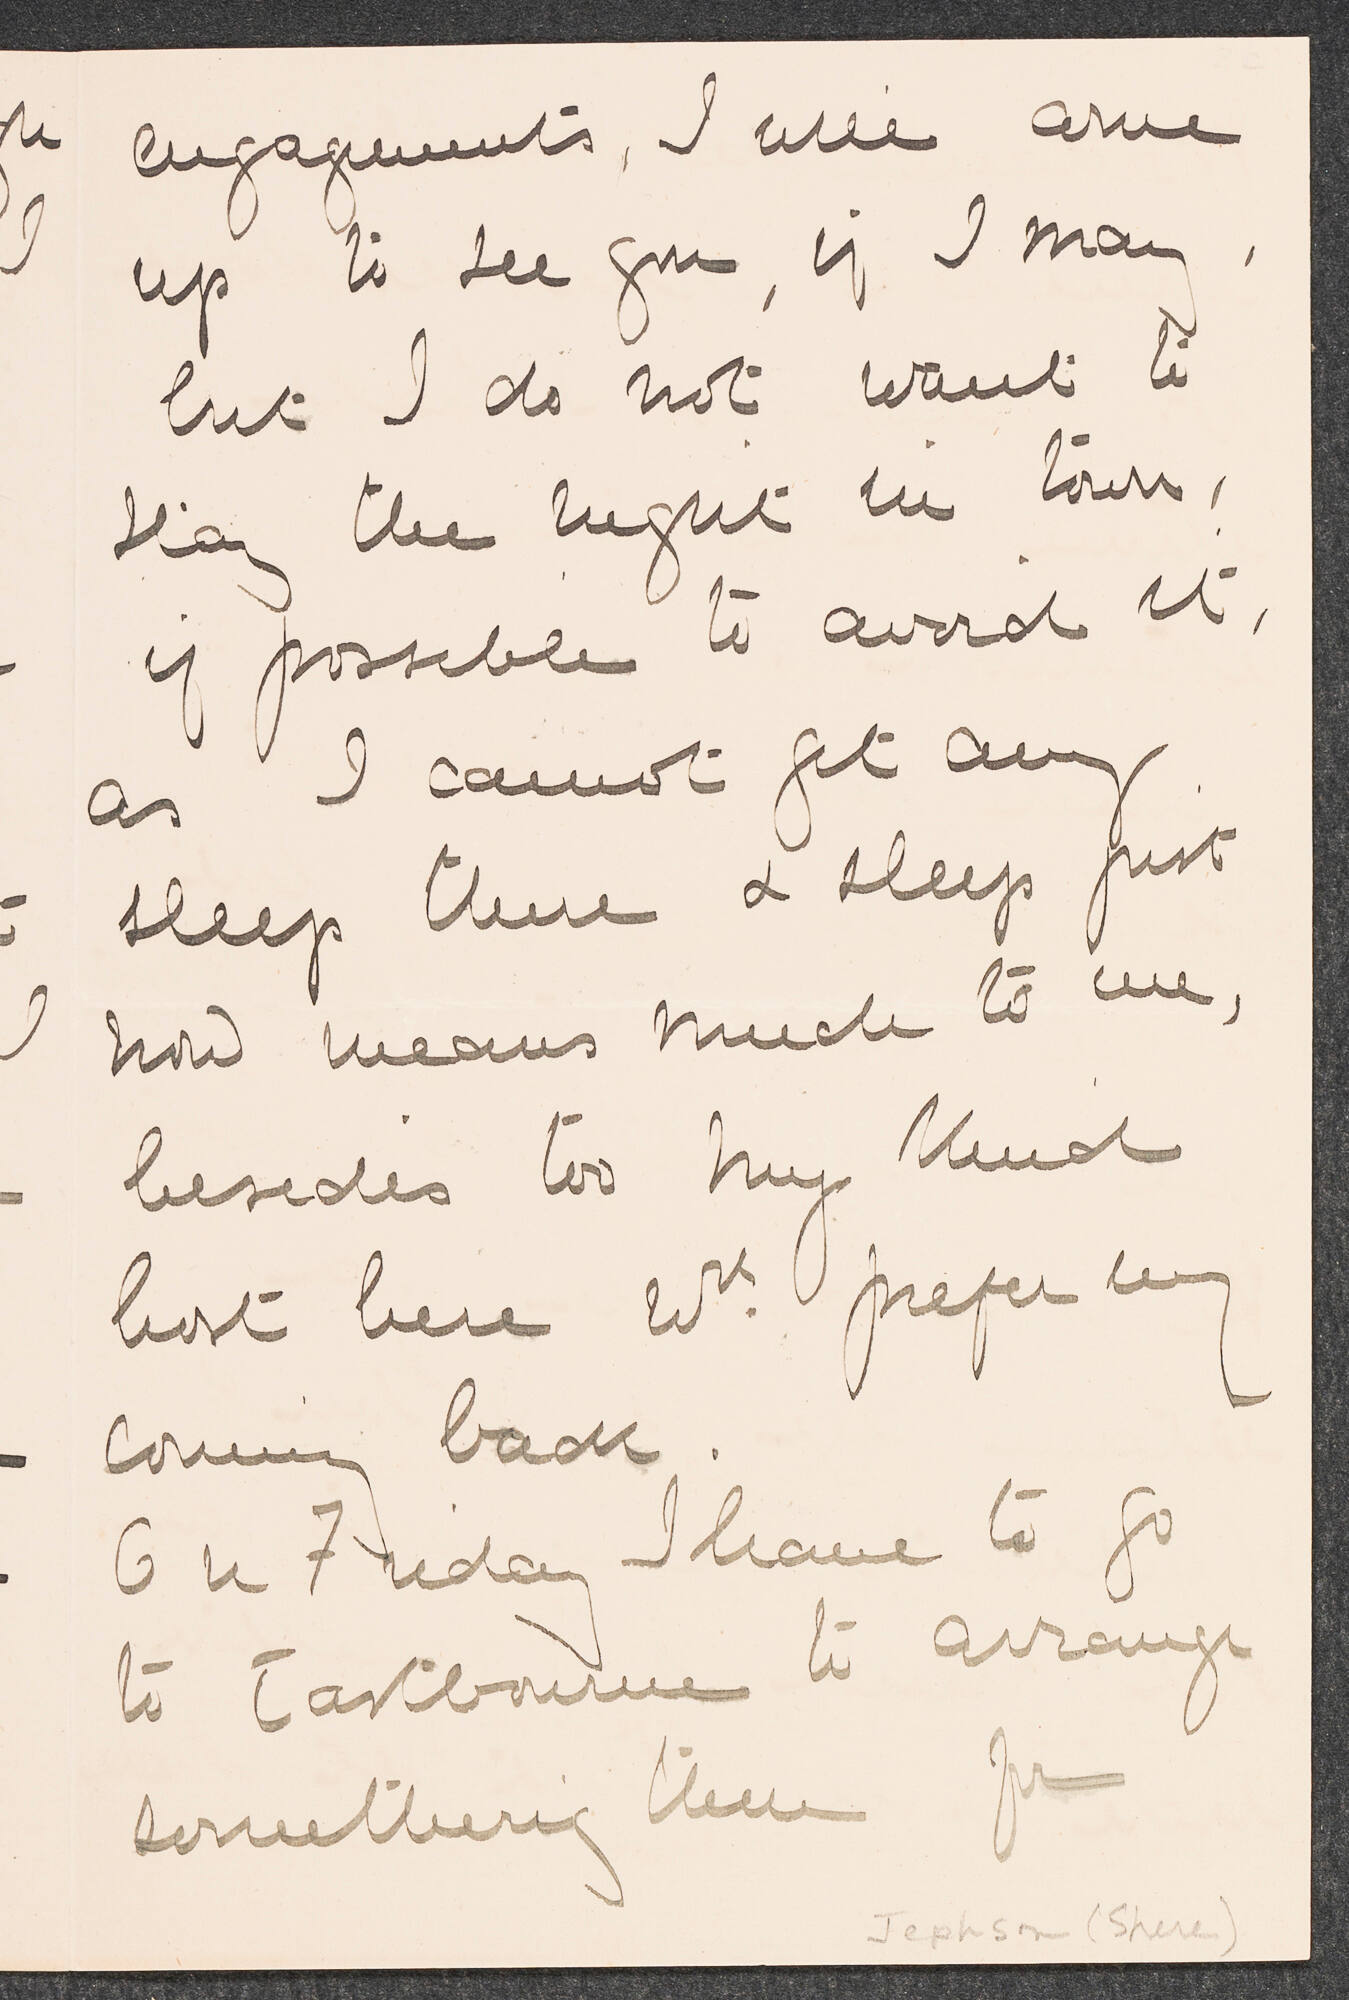 engagements, I will come
up to see you, if I may,
but I do not want to
stay the night in town,
if possible to avoid it,
as I cannot get any
sleep there & sleep just
now means much to me,
besides too my kind
host here wd. prefer my
coming back.
On Friday I have to go
to Eastbourne to arrange
something there for
Jephson (Shere)